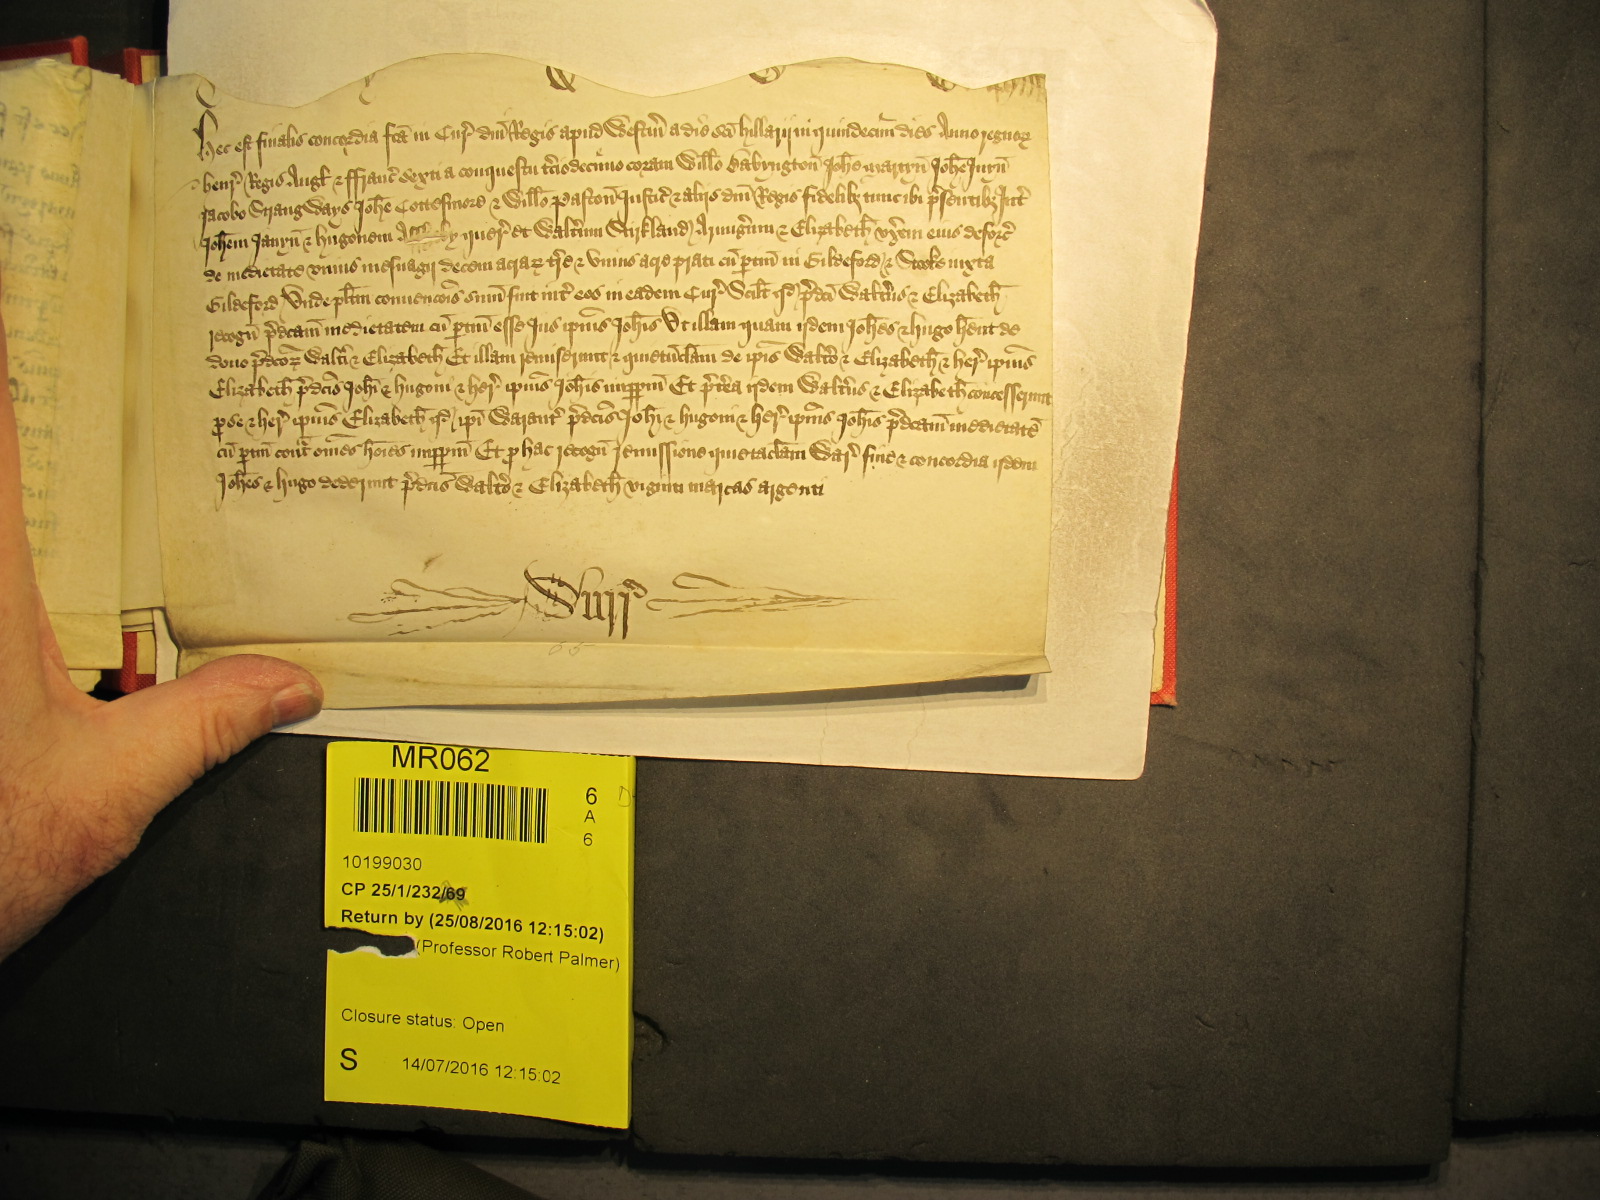 Hec est finalis concordia fca in Cur dni Regis apud Westm a die sci hillarij in quindecim dies Anno regnor
henr Regis Angl & ffranc sexti a conquestu tciodecimo coram Willo Babyngton Johe Martyn Johe Juyn
Jacobo Strangways Johe Cottesmore & Willo Paston Justic & alijs dni Regis fidelibz tunc ibi psentibz Int
Johem & hugonem quer et Waltum Stirkland Armigum & Elizabeth vxem eius deforc
de medietate vnius mesuagij decem acrar tre & vnius acre prati cu ptin in Gildeford & Stoke iuxta
Gildeford Vnde plitm convencois sum fuit int eos in eadem Cur Scilt qd pdci Waltus & Elizabeth
recogn pdcam medietatem cu ptin esse Jus ipius Johis Vt illam quam ijdem Johes & hugo hent de
dono pdcor Walti & Elizabeth Et illam remiserunt & quietumclam de ipis Walto & Elizabeth & her ipius
Elizabeth pdcis Johi & hugoni & her ipius Johis imppm Et ptea ijdem Waltus & Elizabeth concesserunt
p se & her ipius Elizabeth qd ipi Warant pdcis Johi & hugoni & her ipius Johis pdcam medietate
cu ptin cont omes hoies imppm Et p hac recogn remissione quietaclam War fine & concordia ijdem
Johes & hugo dederunt pdcis Walto & Elizabeth viginti marcas argenti
66
MR062
6
A
6
10199030
CP 25/1/232/69
Return by (25/08/2016 12:15:02)
(Professor Robert Palmer)
Closure status: Open
S 14/07/2016 12:15:02